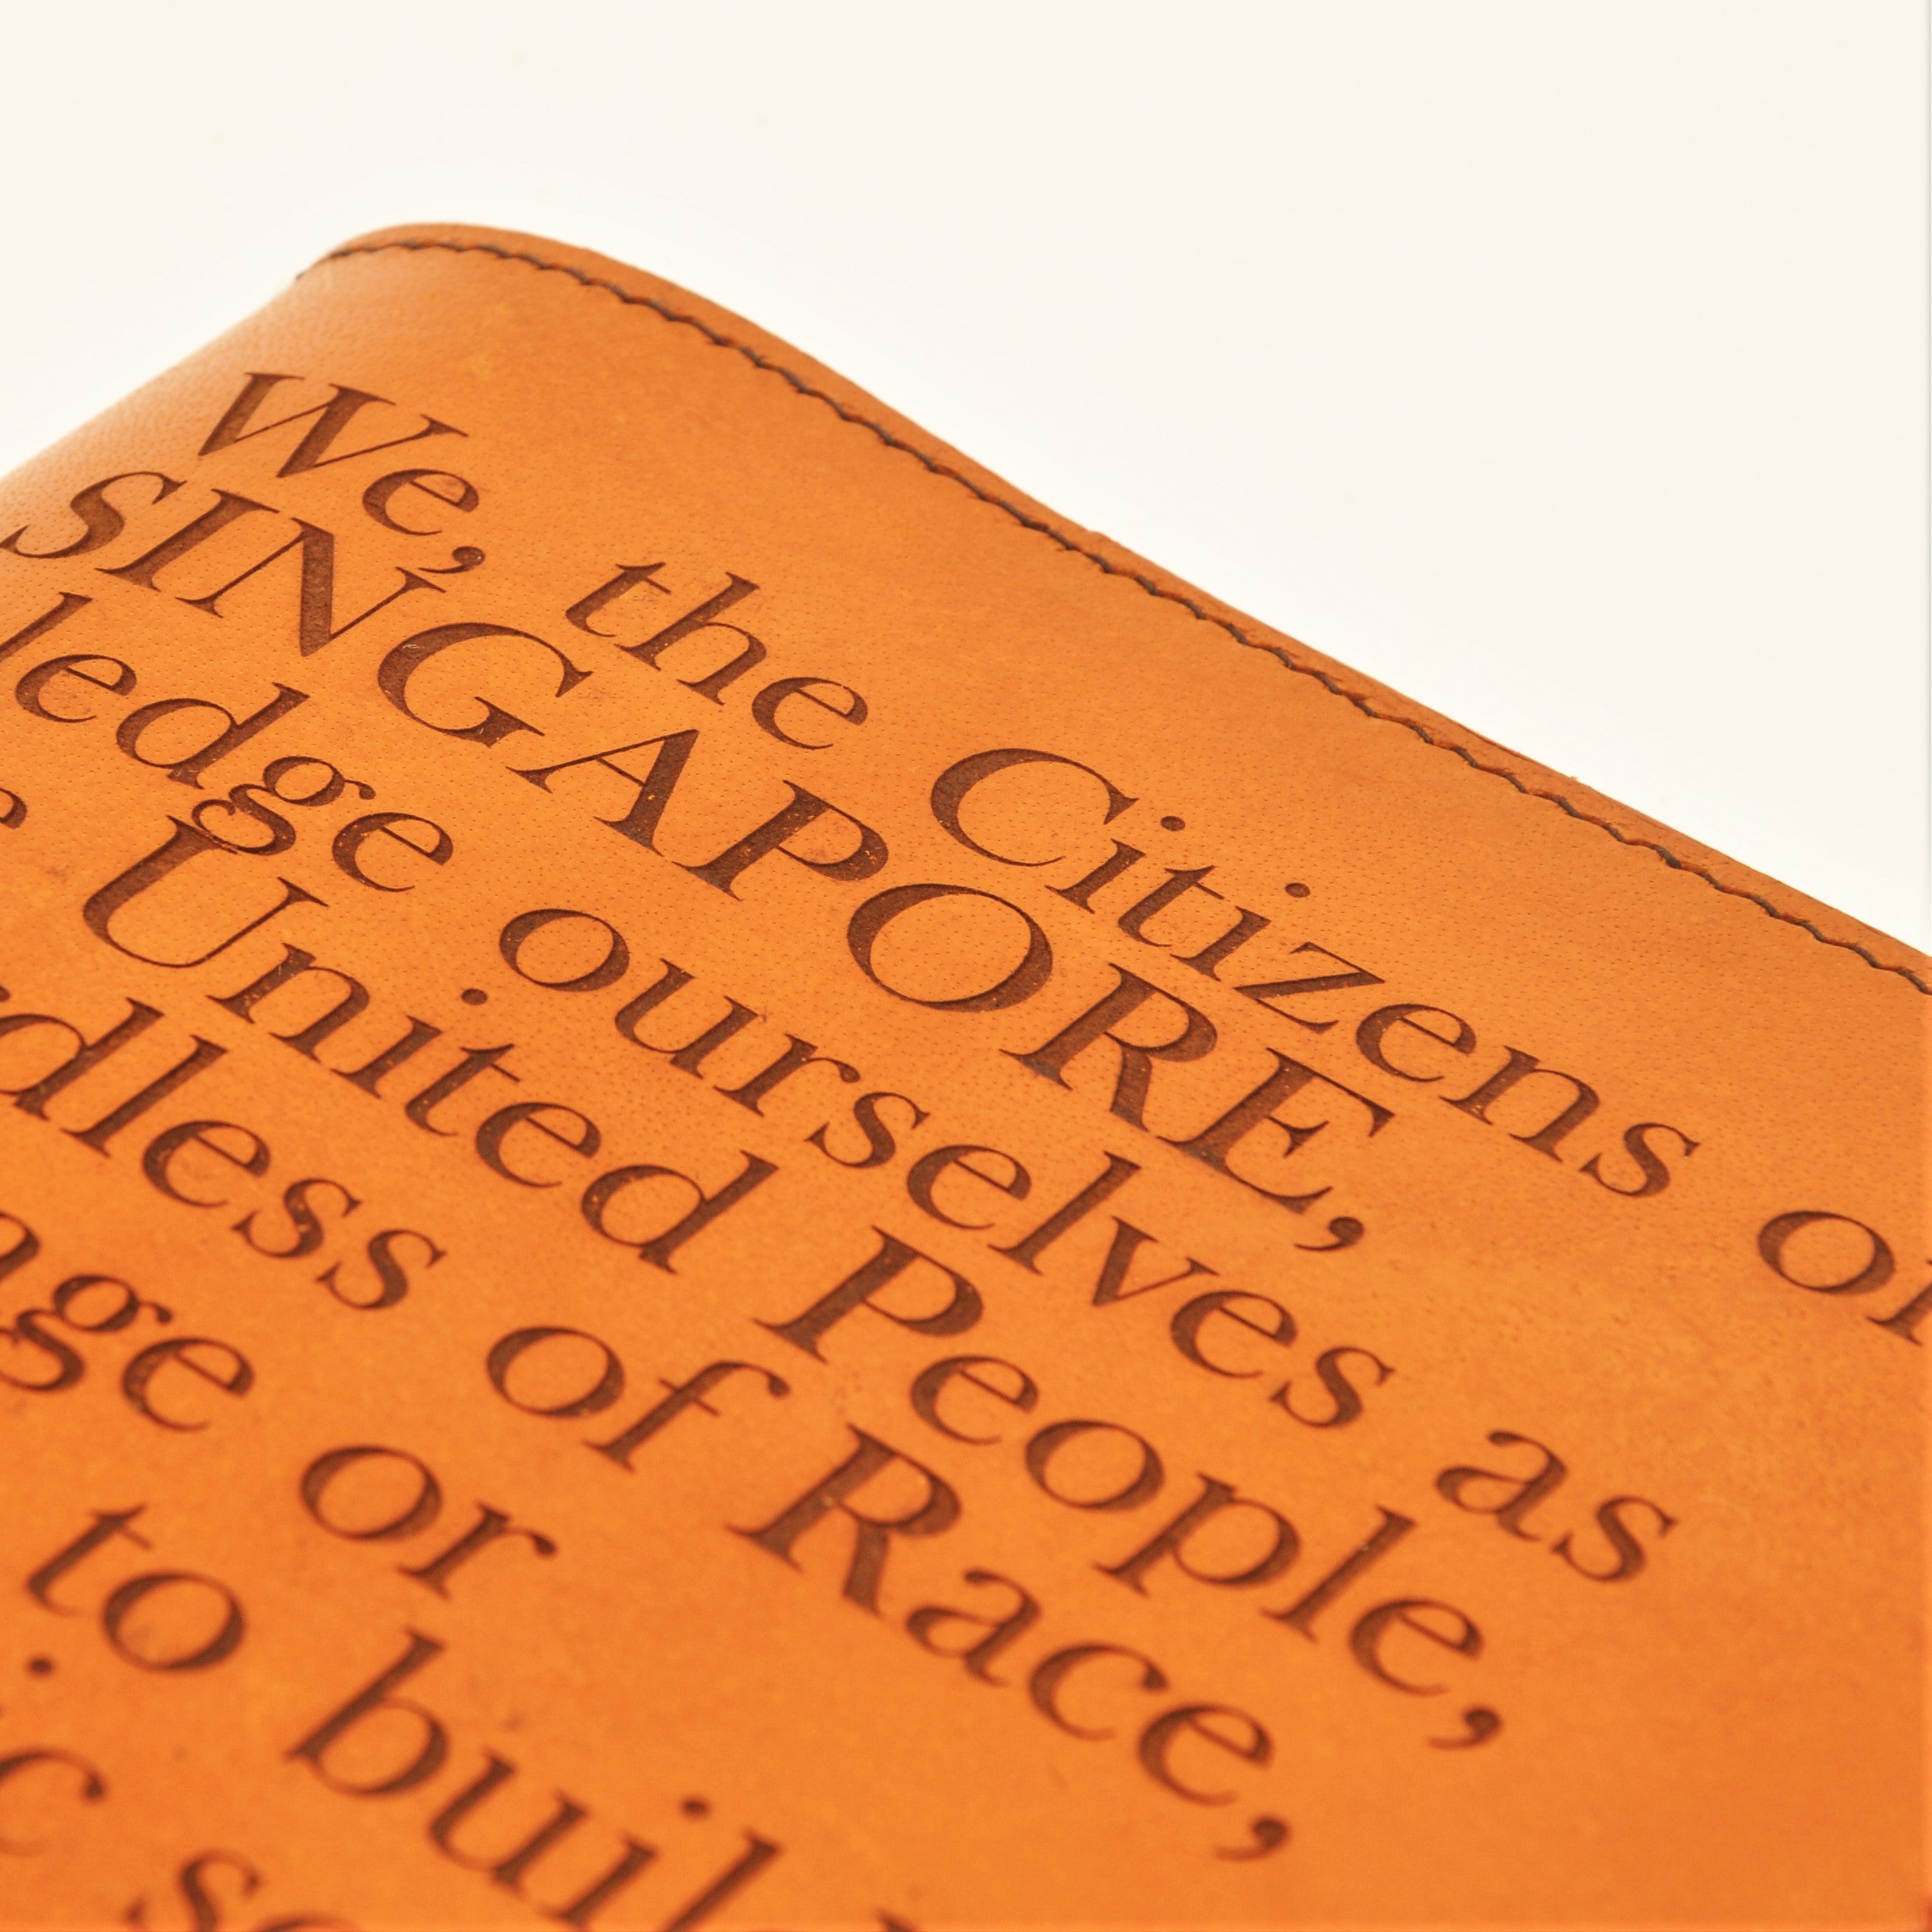 We, the Citizens of
SINGAPORE,
ledge ourselves as
e United People,
rdless of Race,
age or
to build
ic so